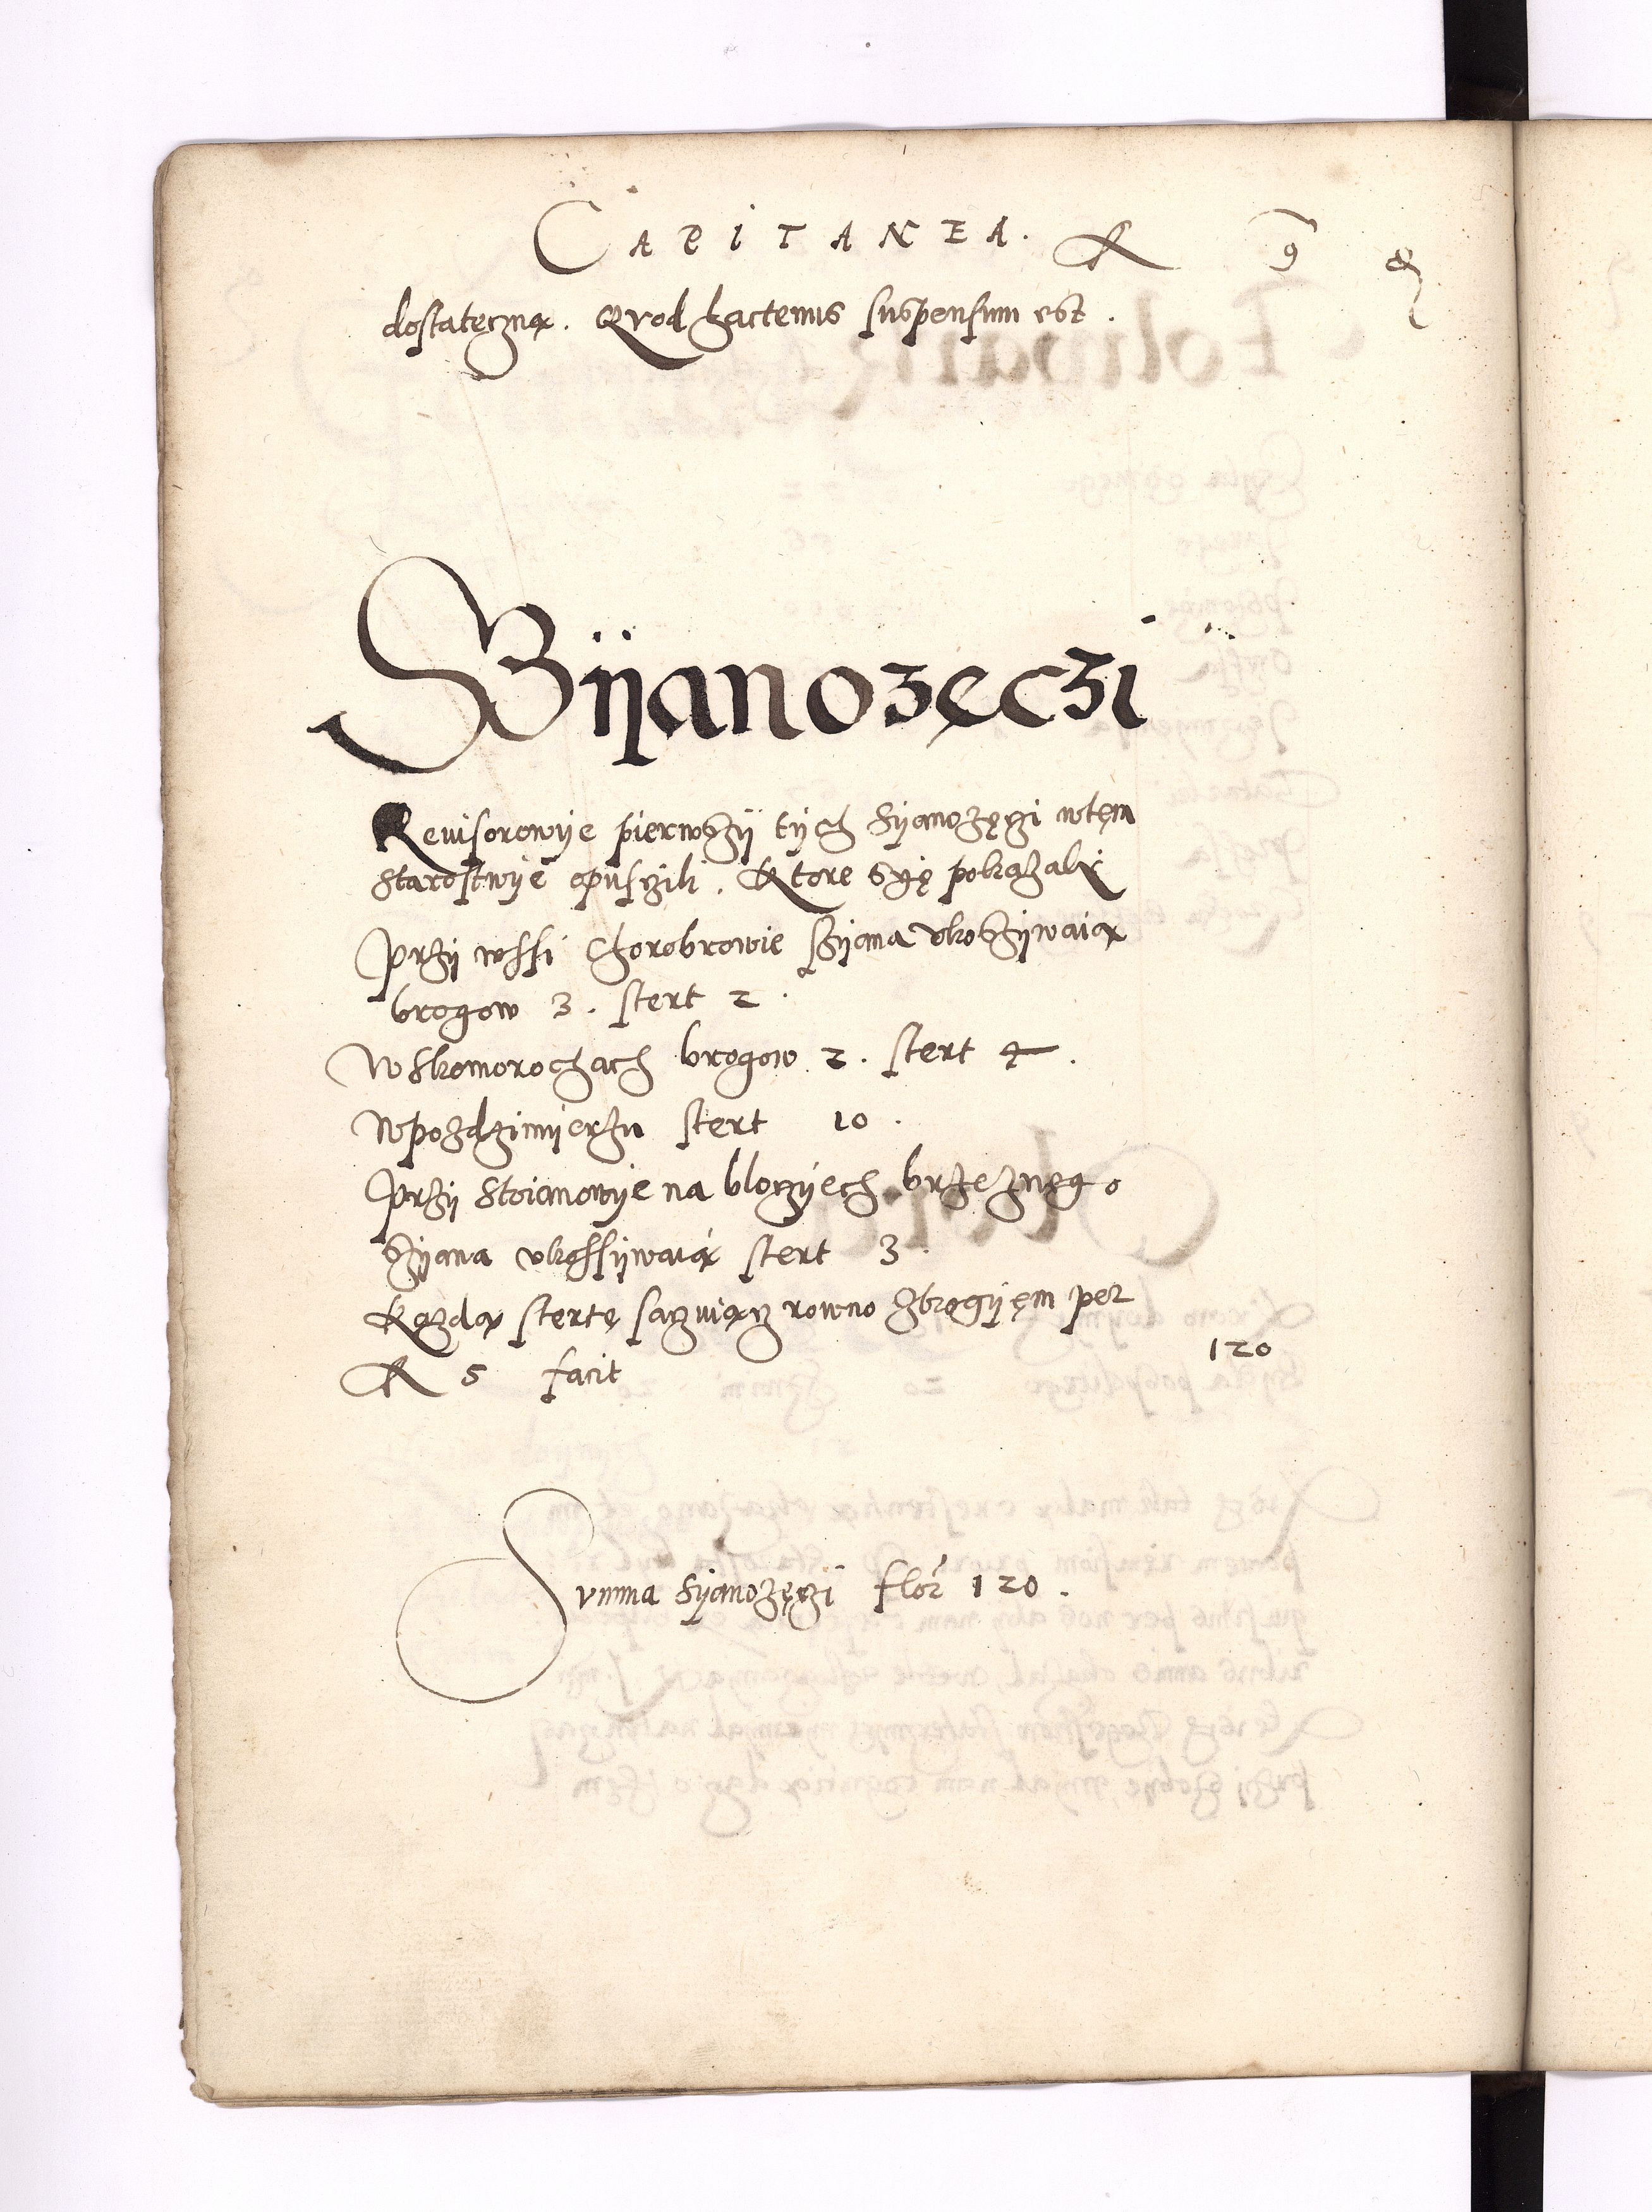 CAPITANEA. fl g̃ ȣ
dostatęczną. Qvod hactenus suspensum est.
Sijanozęczi
Reuisorowije pierwßÿ tych Sijanozęczi wtęm
Starostwije opusczili. Ktore Syę pokazali
przÿ wssi Chorobrowie Sijana vkoßÿwaią
brogow 3. stert 2.
W Skomorochach brogow 2. stert 4.
W pozdzimijerzu stert 10.
przÿ Stoianowije na blocijech brzeznęgo
Sijana vkossÿwaią stert 3.
Kazdą stertę saczuiącz rowno zbrogijęm per
fl 5 facit 120
Svmma Sijanozęczi flor 120.